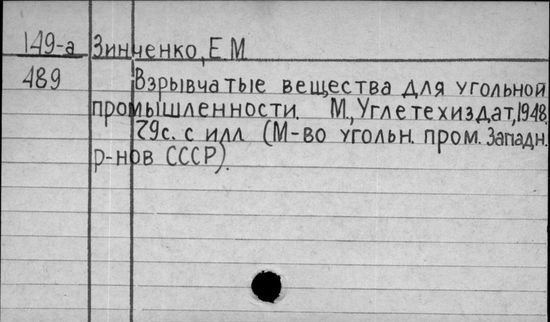 149-а Зинченко, Е.М
489 Взрывчатые вещества для угольной
промышленности. М., Углетехиздат, 1948.
79с. с илл (М-во угольн. пром. Западн.
р-нов СССР).